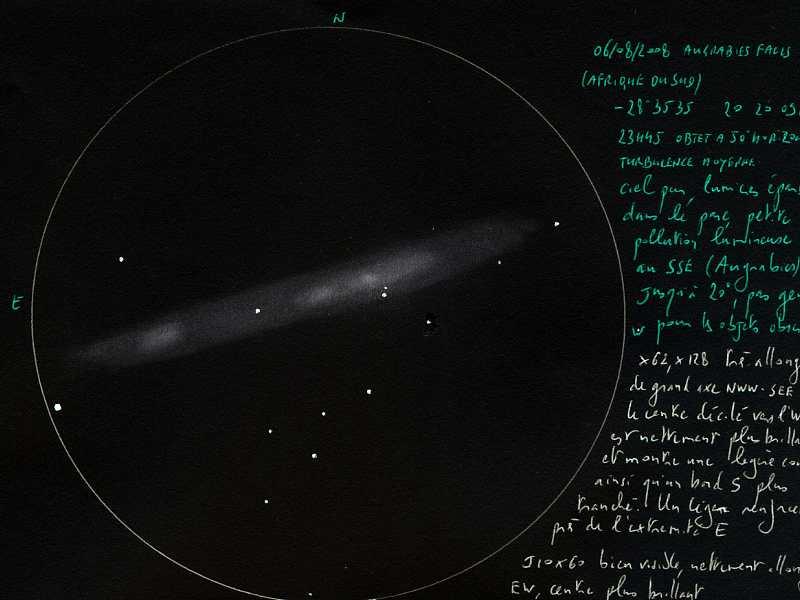 N
06/08/2008 AUGRABIES FALLS
(AFRIQUE DU SUD)
-28°35 35 20 20 09
23H45 OBJET A 50° HORIZON
TURBULENCE MOYENNE
ciel pur, lumières épar
dans le parc, petite
pollution lumineuse
au SSE (Augrabies)
E
Jusqu'à 20°, pas gên
W pour les objets obse
x62, x128 très allong
de grand axe NWW-SEE
le centre décalé vers l'W
est nettement plus brilla
et montre une légère cou
ainsi qu'un bord S plus
tranché. Un léger renforce
près de l'extrémité E
J10x60 bien visible, nettement allon
EW, centre plus brillant